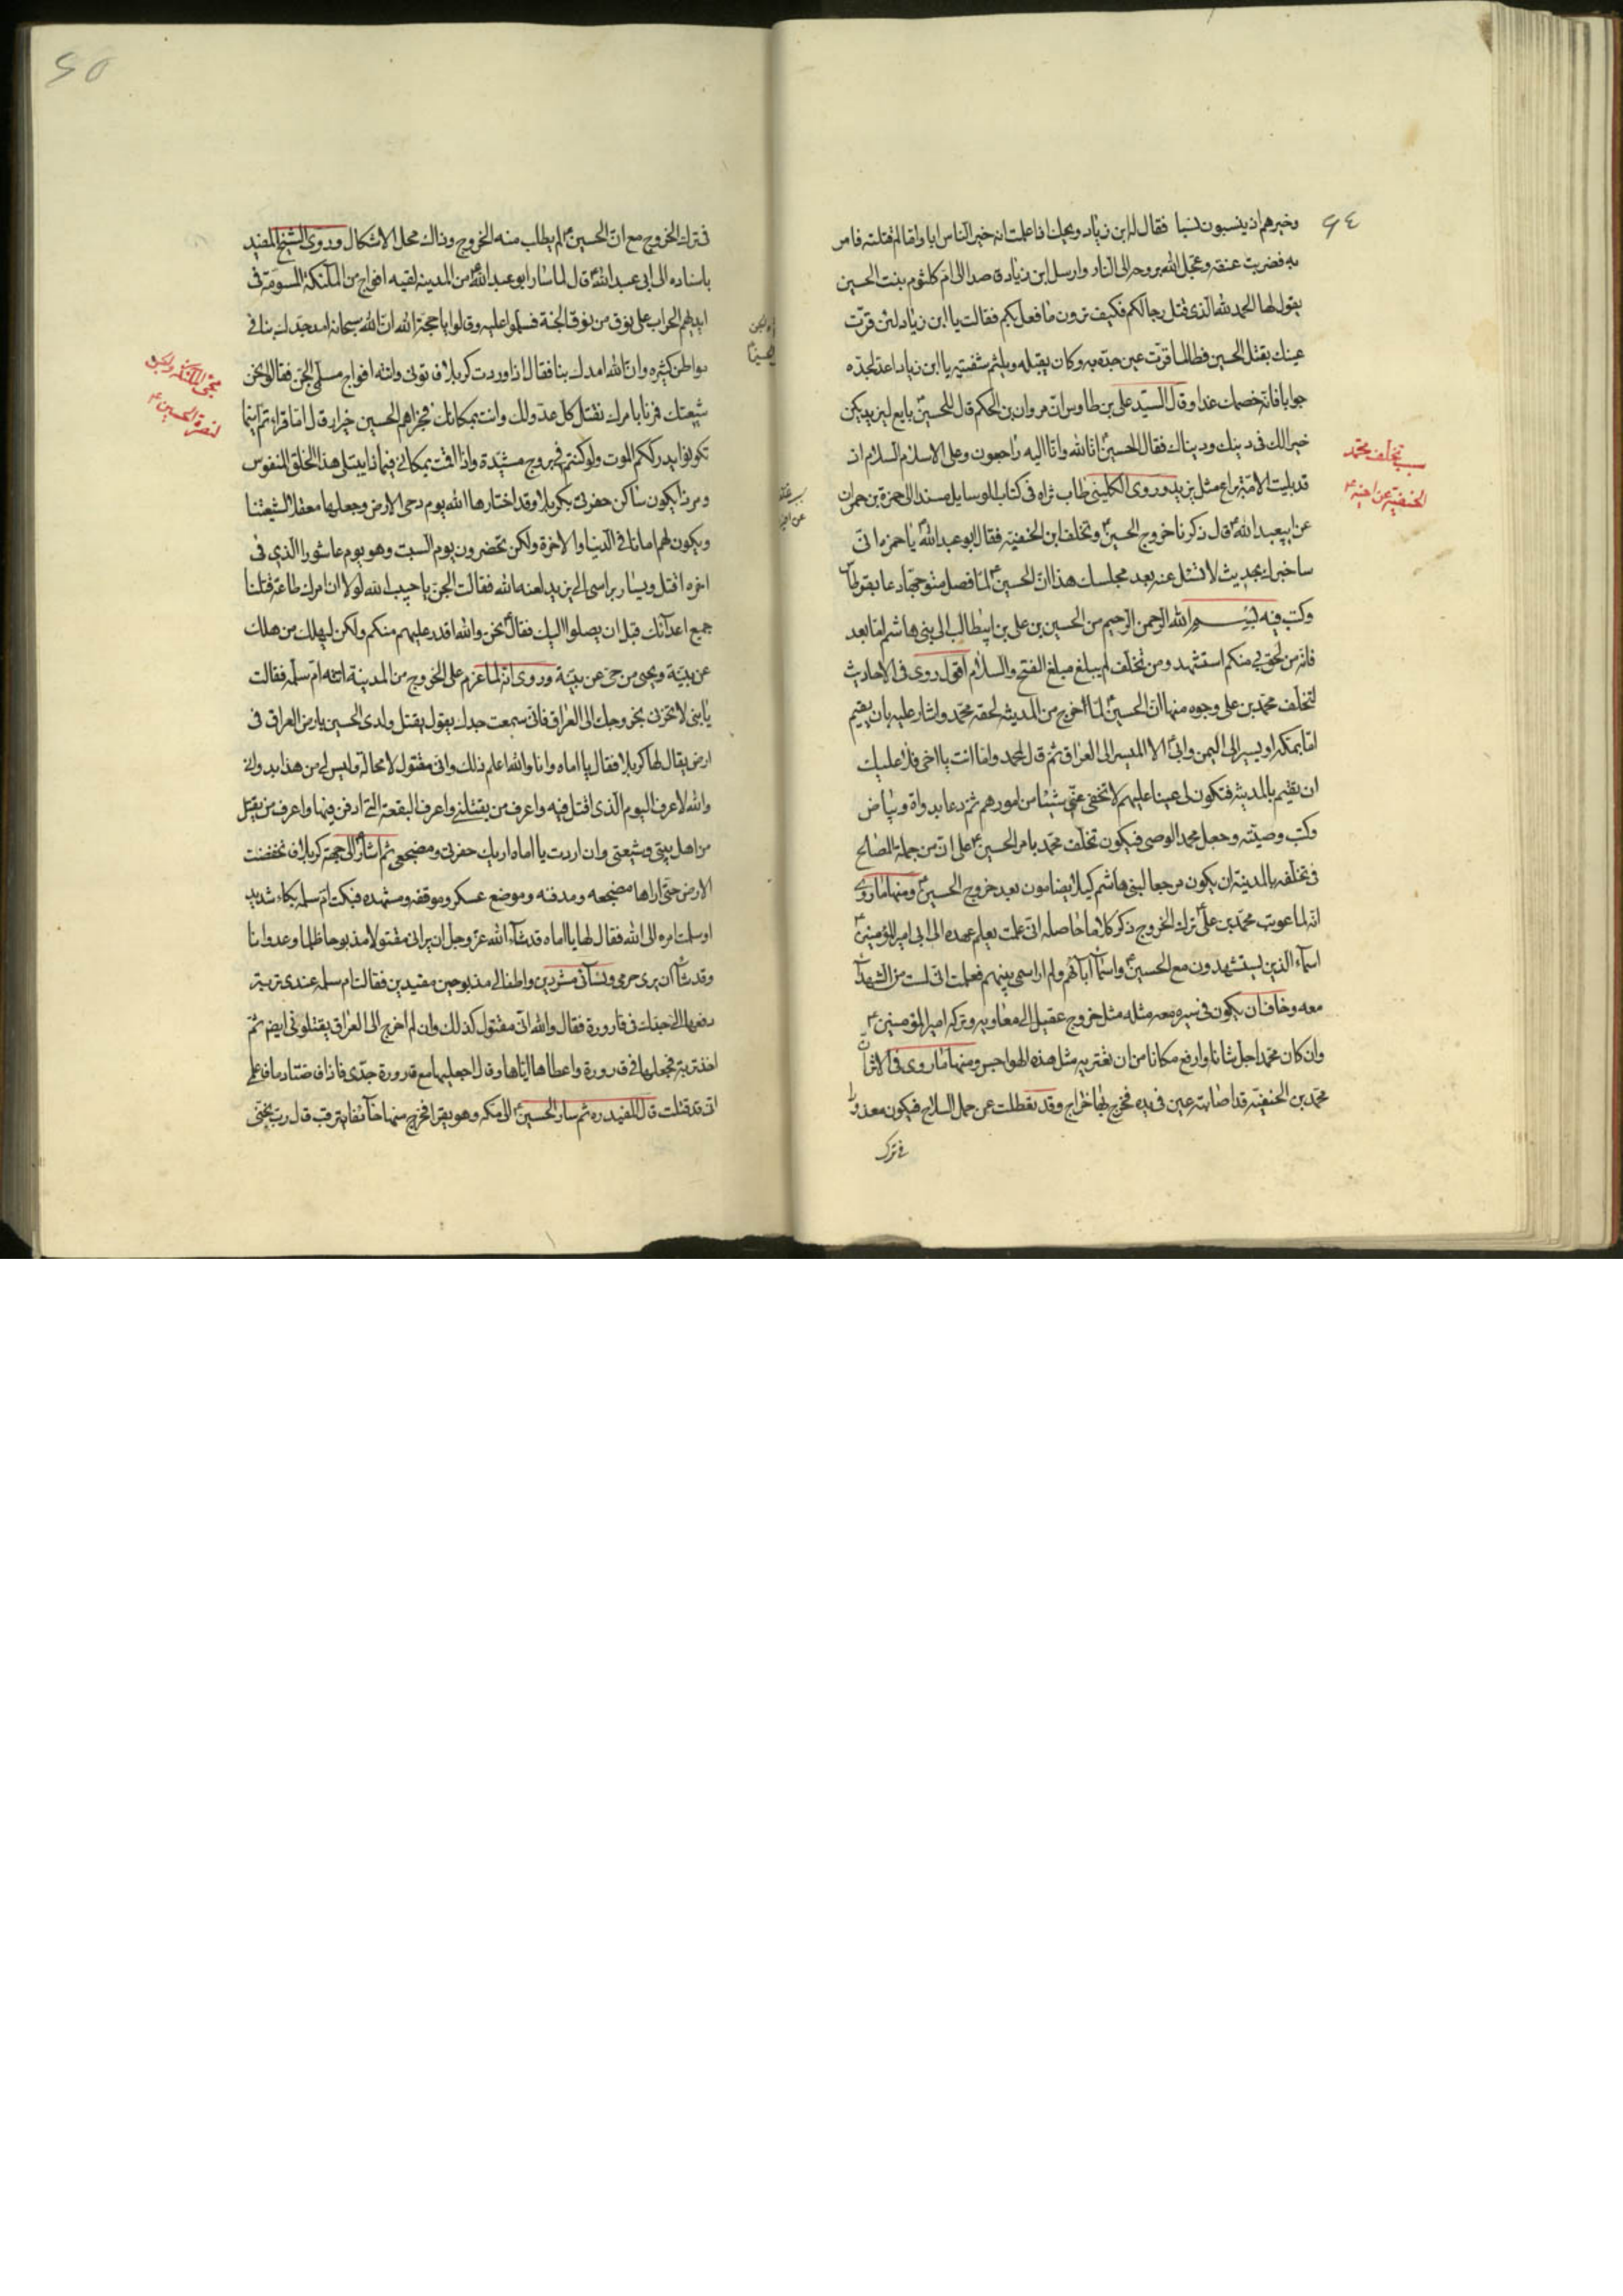 ٩٤
وخيرهم اذ ينسبون نسبا فقال له ابن زياد ويحك اذا علمت انه خير الناس ابا واما لم قتلته فامر
به فضربت عنقه وعجل الله بروحه الى النار وارسل ابن زياد قاصدا الى ام كلثوم بنت الحسين
يقول لها الحمد لله الذي قتل رجالكم فكيف ترون ما فعل بكم فقالت يا ابن زياد لئن قرت
عينك بقتل الحسين فطالما قرت عين جده به وكان يقبله ويلثم شفتيه يا ابن زياد اعد لجده
جوابا فانه خصمك غدا وقال السيد علي بن طاوس ان مروان بن الحكم قال للحسين بايع ليزيد يكن
خيرا لك في دينك ودنياك فقال الحسين انا لله وانا اليه راجعون وعلى الاسلام السلام اذ
قد بليت الامة براع مثل يزيد وروى الكليني طاب ثراه في كتاب الوسايل مسندا الى حمزة بن حمران
عن ابيعبد الله قال ذكرنا خروج الحسين وتخلف ابن الحنفية فقال ابو عبد الله يا حمزه اني
ساخبرك بحديث لا تسئل عنه بعد مجلسك هذا ان الحسين لما فصل متوجها دعا بقرطاس
وكتب فيه بسم الله الرحمن الرحيم من الحسين بن علي بن ابيطالب الى بني هاشم اما بعد
فانه من لحق بي منكم استشهد ومن تخلف لم يبلغ مبلغ الفتح والسلام اقول روي في الاحاديث
لتخلف محمد بن علي وجوه منها ان الحسين لما اخرج من المدينه لحقه محمد واشار عليه بان يقيم
اما بمكه او يسير الى اليمن وابى الا المسير الى العراق ثم قال لمحمد واما انت يا اخي فلا عليك
ان تقيم بالمدينه فتكون لي عينا عليهم لا تخفي عني شيئا من امورهم ثم دعا بدواة وبياض
وكتب وصيته وجعل محمد الوصي فيكون تخلف محمد بامر الحسين على ان من جملة المصالح
في تخلفه بالمدينة ان يكون مرجعا لبني هاشم كيلا يضامون بعد خروج الحسين ومنها ما روي
انه لما عوتب محمد بن علي ترك الخروج ذكر كلاما حاصله اني علمت بعلم عهده الي ابي امير المؤمنين
اسماء الذين يستشهدون مع الحسين واسماء ابائهم ولم ار اسمي بينهم فعلمت اني لست من الشهداء
معه وخاف ان يكون في سيره معه مثله مثل خروج عقيل الى معاويه وتركه امير المؤمنين
وان كان محمد اجل شانا وارفع مكانا من ان تغتر به مثل هذه الهواجس ومنها ما روي في الاثر ان
محمد بن الحنفيه قد اصابته عين في يده فخرج بها خراج وقد تعطلت عن حمل السلاح فيكون معذورا
في ترك
سبب تخلف محمد
الحنفية عن اخيه
٩٥
في ترك الخروج مع ان الحسين لم يطلب منه الخروج وذاك محل الاشكال وروى الشيخ المفيد
باسناده الى ابي عبد الله قال لما سار ابو عبد الله من المدينه لقيه افواج من الملئكة المسومة في
ايديهم الحراب على نوق من نوق الجنة فسلموا عليه وقالوا يا حجة الله ان الله سبحانه امد جدك بنا في
مواطن كثيره وان الله امدك بنا فقال اذا وردت كربلا فاتوني واتته افواج مسلمي الجن فقالوا نحن
شيعتك فمرنا بامرك نقتل كل عدو لك وانت بمكانك فجزاهم الحسين خيرا وقال اما قراتم اينما
تكونوا يدرككم الموت ولو كنتم في بروج مشيدة واذا اقمت بمكاني فبماذا يبتلى هذا الخلق المنفوس
ومن ذا يكون ساكن حفرتي بكربلا وقد اختارها الله يوم دحى الارض وجعلها معقلا لشيعتنا
ويكون لهم امانا في الدنيا والاخرة ولكن تحضرون يوم السبت وهو يوم عاشورا الذي في
اخره اقتل ويسار براسي الى يزيد لعنه الله فقالت الجن يا حبيب الله لولا ان امرك طاعة قتلنا
جميع اعدائك قبل ان يصلوا اليك فقال نحن والله اقدر عليهم منكم ولكن ليهلك من هلك
عن بينة ويحيى من حي عن بينة وروى انه لما عزم على الخروج من المدينة اتته ام سلمه فقالت
يا بني لا تحزني بخروجك الى العراق فاني سمعت جدك يقول يقتل ولدي الحسين بارض العراق في
ارض يقال لها كربلا فقال يا اماه وانا والله اعلم ذلك واني مقتول لا محالة وليس لي من هذا بد واني
والله لاعرف اليوم الذي اقتل فيه واعرف من يقتلني واعرف البقعة التي ادفن فيها واعرف من يقتل
من اهل بيتي وشيعتي وان اردت يا اماه اريك حفرتي ومضجعي ثم اشار الى جهة كربلا فانخفضت
الارض حتى اراها مضجعه ومدفنه وموضع عسكره وموقفه ومشهده فبكت ام سلمه بكاء شديد
او سلمت امره الى الله فقال لها يا اماه قد شاء الله عز وجل ان يراني مقتولا مذبوحا ظلما وعدوانا
وقد شاء ان يرى حرمي ونسائي مشردين واطفالي مذبوحين مقيدين فقالت ام سلمه عندي تربة
دفعها الي جدك في قارورة فقال والله اني مقتول كذلك وان لم اخرج الى العراق يقتلوني ايضم ثم
اخذ تربة فجعلها في قارورة واعطاها اياها وقال اجعليها مع قارورة جدي فاذا فاضتا دما فاعلمي
اني قد قتلت قال المفيد ره ثم سار الحسين الى مكه وهو يقرا فخرج منها خائفا يترقب قال رب نجني
مجئ الملئكة والجن
لنصرة الحسين